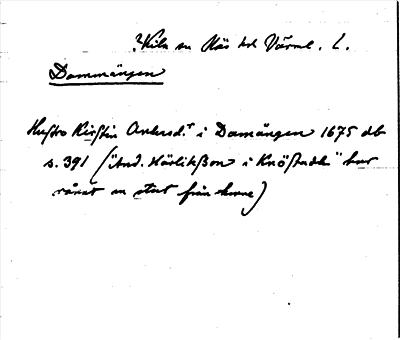 ? Kila sn Näs hd Värml. L.
Dammängen
Hustro Kirstin Anders d:r i Damängen 1675 db
s. 391 ("And. Härlikßon i Knöstadh" har
rånat en stut från henne)